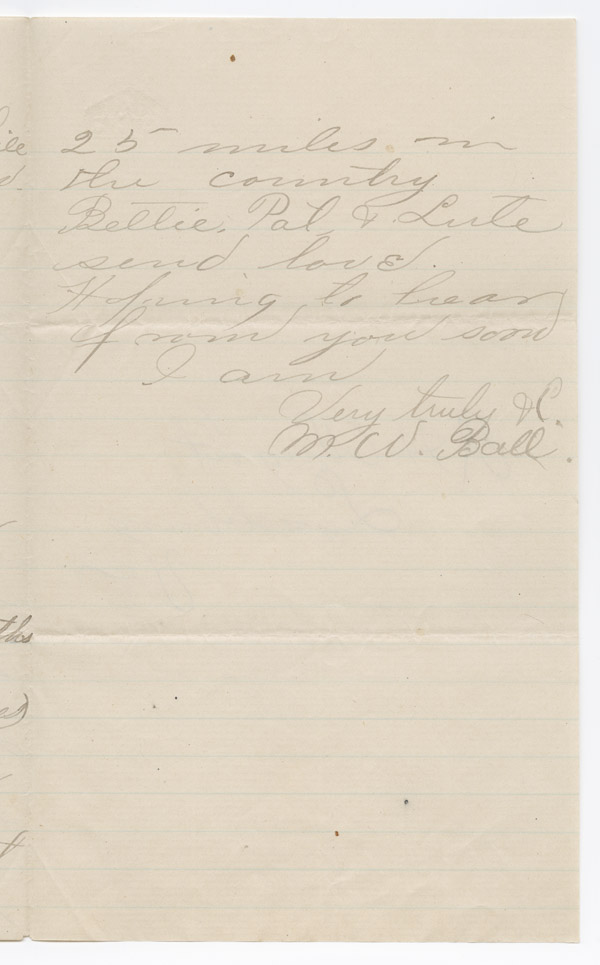 25 miles in
the country
Bettie, Pat & Lute
send love.
Hoping to hear
from you soon
I am
Very truly &C.
M. W. Ball.